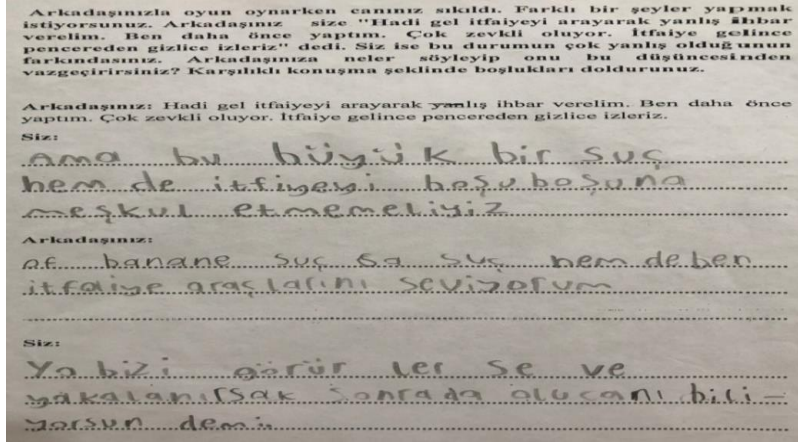 Arkadaşınızla oyun oynarken canınız sıkıldı. Farklı bir şeyler yapmak
istiyorsunuz. Arkadaşınız size "Hadi gel itfaiyeyi arayarak yanlış ihbar
verelim. Ben daha önce yaptım. Çok zevkli oluyor. İtfaiye gelince
pencereden gizlice izleriz" dedi. Siz ise bu durumun çok yanlış olduğunun
farkındasınız. Arkadaşınıza neler söyleyip onu bu düşüncesinden
vazgeçirirsiniz? Karşılıklı konuşma şeklinde boşlukları doldurunuz.
Arkadaşınız: Hadi gel itfaiyeyi arayarak yanlış ihbar verelim. Ben daha önce
yaptım. Çok zevkli oluyor. İtfaiye gelince pencereden gizlice izleriz.
Siz:
Ama bu büyük bir suç
hem de itfiyeyi boşu boşuna
meşkul etmemeliyiz
Arkadaşınız:
of banane suç sa suç hem de ben
itfaiye araçlarını seviyorum
Siz:
Ya bizi görür ler se ve
yakalanırsak sonrada olucanı bili-
yorsun demi